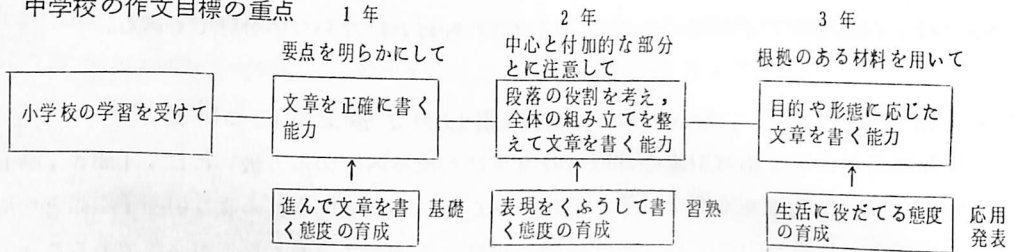 中学校の作文目標の重点
1年
2年
3年
要点を明らかにして
中心と付加的な部分
とに注意して
根拠のある材料を用いて
小学校の学習を受けて
文章を正確に書く
能力
段落の役割を考え，
全体の組み立てを整
えて文章を書く能力
目的や形態に応じた
文章を書く能力
進んで文章を書
く態度の育成
基礎
表現をくふうして書
く態度の育成
習熟
生活に役だてる態度
の育成
応用
発表